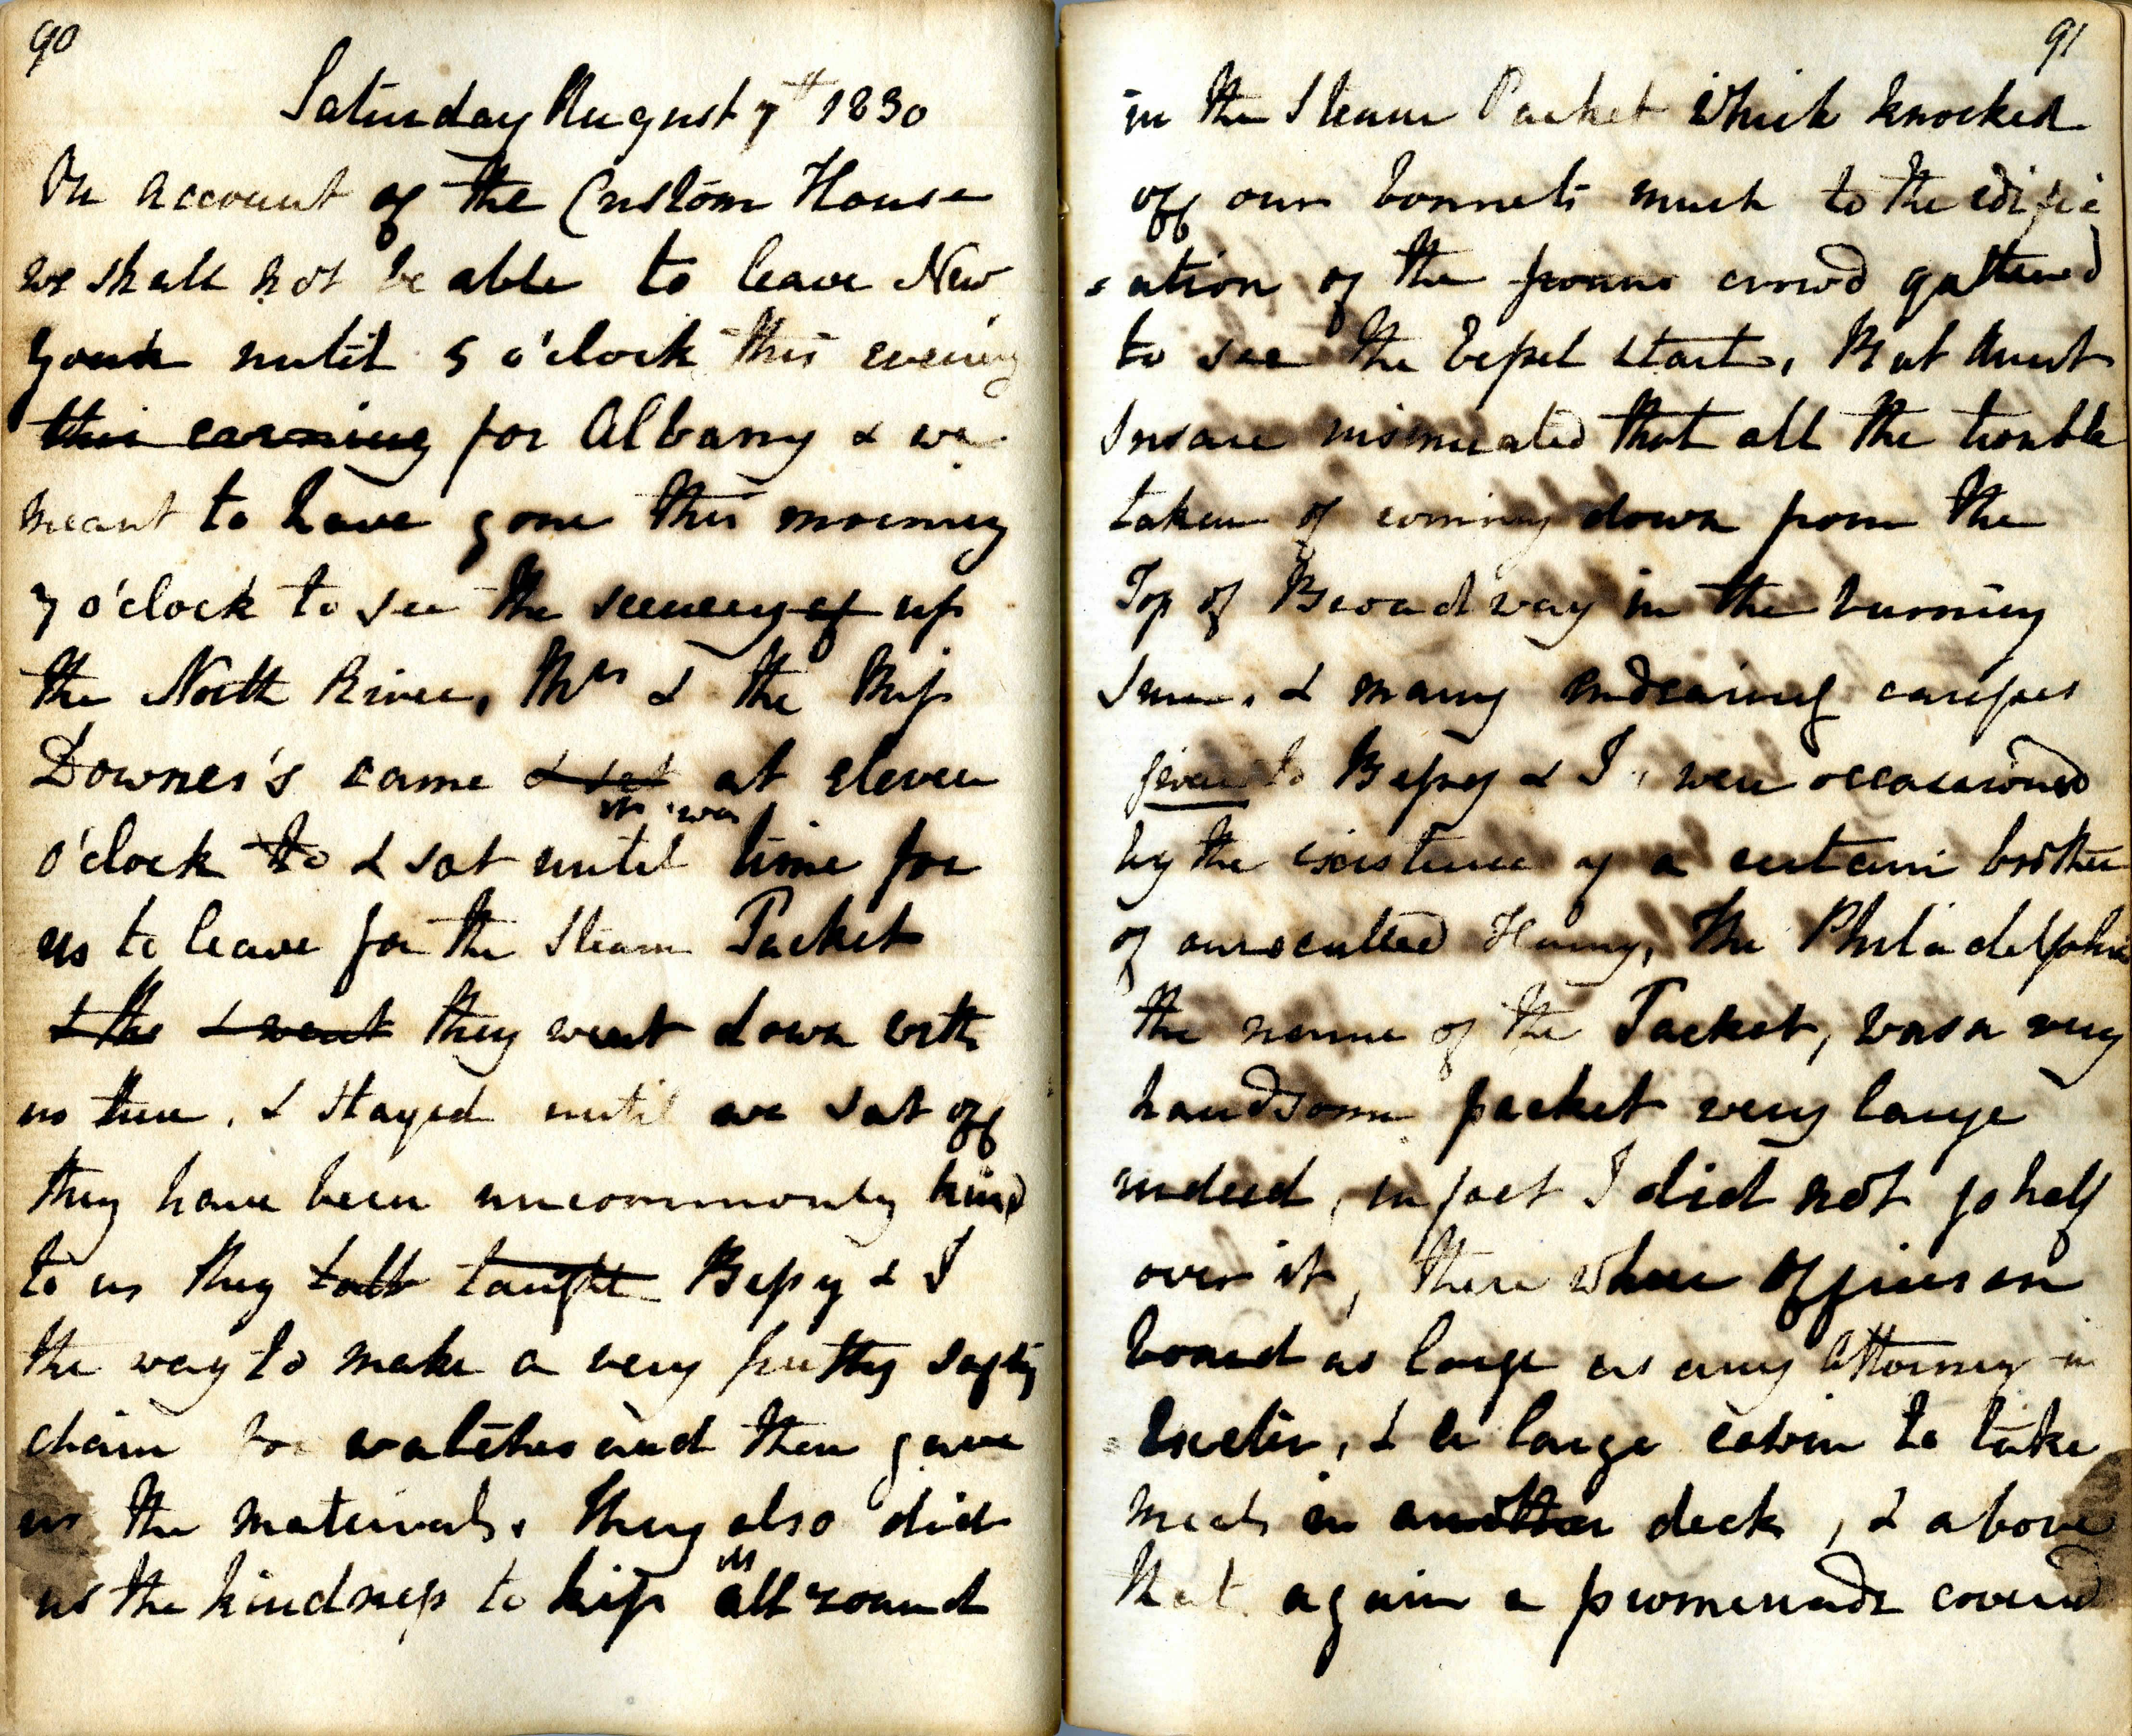 90
Saturday August 7th 1830
On account of the Custom House
we shall not be able to leave New
York until 5 o'clock this evening
this earning for Albany & we
meant to have gone this morning
7 o'clock to see the scenery of up
the North River, Mrs & the Miss
Downes's came & sat at eleven
it was
o'clock to & sat until time for
us to leave for the Steam Packet
& the & went they went down with
us there, & stayed until we sat off
they have been uncommonly kind
to us they talk taught Bessy & I
the way to make a very pretty safety
chain for watches and then gave
us the materials. They also did
us
us the kindness to kiss all round
91
in the Steam Packet which knocked
off our bonnets much to the edific
ation of the crowd gathered
to see the Vessel start, But Aunt
insinuated that all the trouble
taken of coming down from the
Top of Broadway in the burning
Sun, & many endearing caresses
given to Bessy & I, were occasioned
by the existence of a certain brother
of ours called Henry, The Philadelphia
the name of the Packet, was a very
handsome packet very large
indeed, in fact I did not go half
over it, there where offices on
board as large as any Attorney in
Exeter, & a large cabin to take
meals in another deck, & above
that again a promenade covered